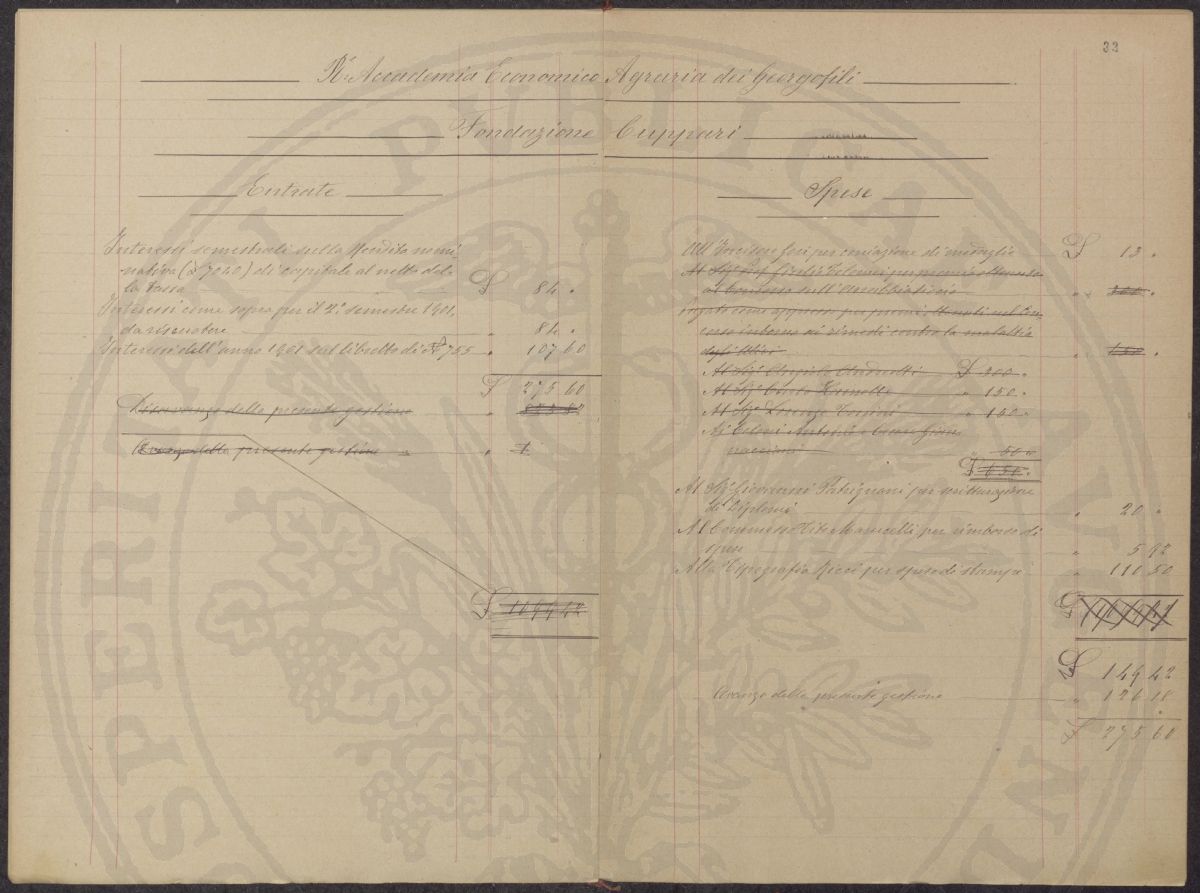 33
R. Accademia Economico Agraria dei Georgofili
Fondazione Cuppari
Entrate
Interessi semestrali sulla Rendita nomi-
nativa (£ 7040) di capitale al netto del-
la Tassa £ 84 "
Interessi come sopra per il 2° semestre 1901,
da riscuotere " 84 "
Interessi dell'anno 1901 sul libretto di £ 755 " 107 60
£ 275 60
Disavanzo della presente gestione "
Avanzo della presente gestione " "
£ 1049 42
Spese
All'Incisore per coniazione di medaglie £ 13 "
Al Sig. Prof. per premio ottenuto
al Concorso sull' " 300 "
pagate come appresso per premi nel Con-
corso intorno ai rimedi contro la malattia
degli Ulivi "
Al Sig. £ 300 "
Al Sig. Carlo " 150 "
Al Sig. Lorenzo " 150 "
Ai Coloni Antonio e
" 50 "
£ 650 "
Al Sig. Giovanni Patrignani per scritturazione
di Diplomi " 20 "
Al Commesso Tito Marucelli per rimborso di
spese " 5 92
Alla Tipografia Ricci per spese di stampe " 110 50
£
£ 149 42
Avanzo della presente gestione " 126 18
£ 275 60
SPERITATI PVBLICAE AVGEN